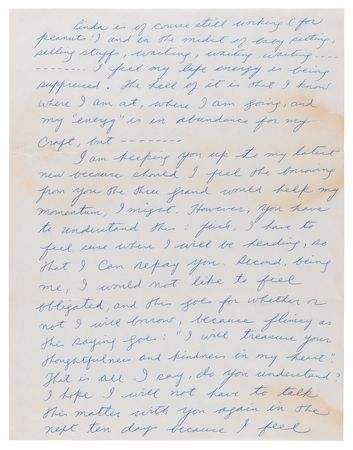 Linda is of course still working (for
peanuts!) and in the midst of baby sitting,
selling stuffs, waiting, waiting, waiting ----
-------. I feel my life energy is being
suppressed. The heel of it is that I know
where I am at, where I am going, and
my "energy" is in abundance for my
craft, but --------
I am keeping you up to my latest
new because should I feel the borrowing
from you the three grand would help my
momentum, I might. However, you have
to understand this: first, I have to
feel sure where I will be heading, so
that I can repay you. Second, being
me, I would not like to feel
obligated, and this goes for whether or
not I will borrow, because flimsy as
this saying goes: "I will treasure your
thoughtfulness and kindness in my heart".
That is all I say, do you understand?
I hope I will not have to talk
this matter with you again in the
next ten days because I feel